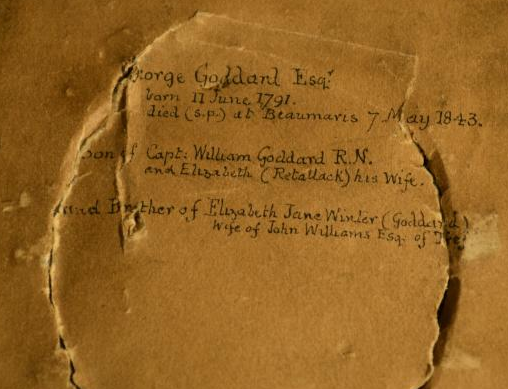 George Goddard Esqr
born 11 June 1791.
died (s.p.) at Beaumaris 7 May 1843.
Son of Capt: William Goddard R.N.
and Elizabeth (Retallack) his Wife.
and Brother of Elizabeth Jane Winter (Goddard)
Wife of John Williams Esq. of